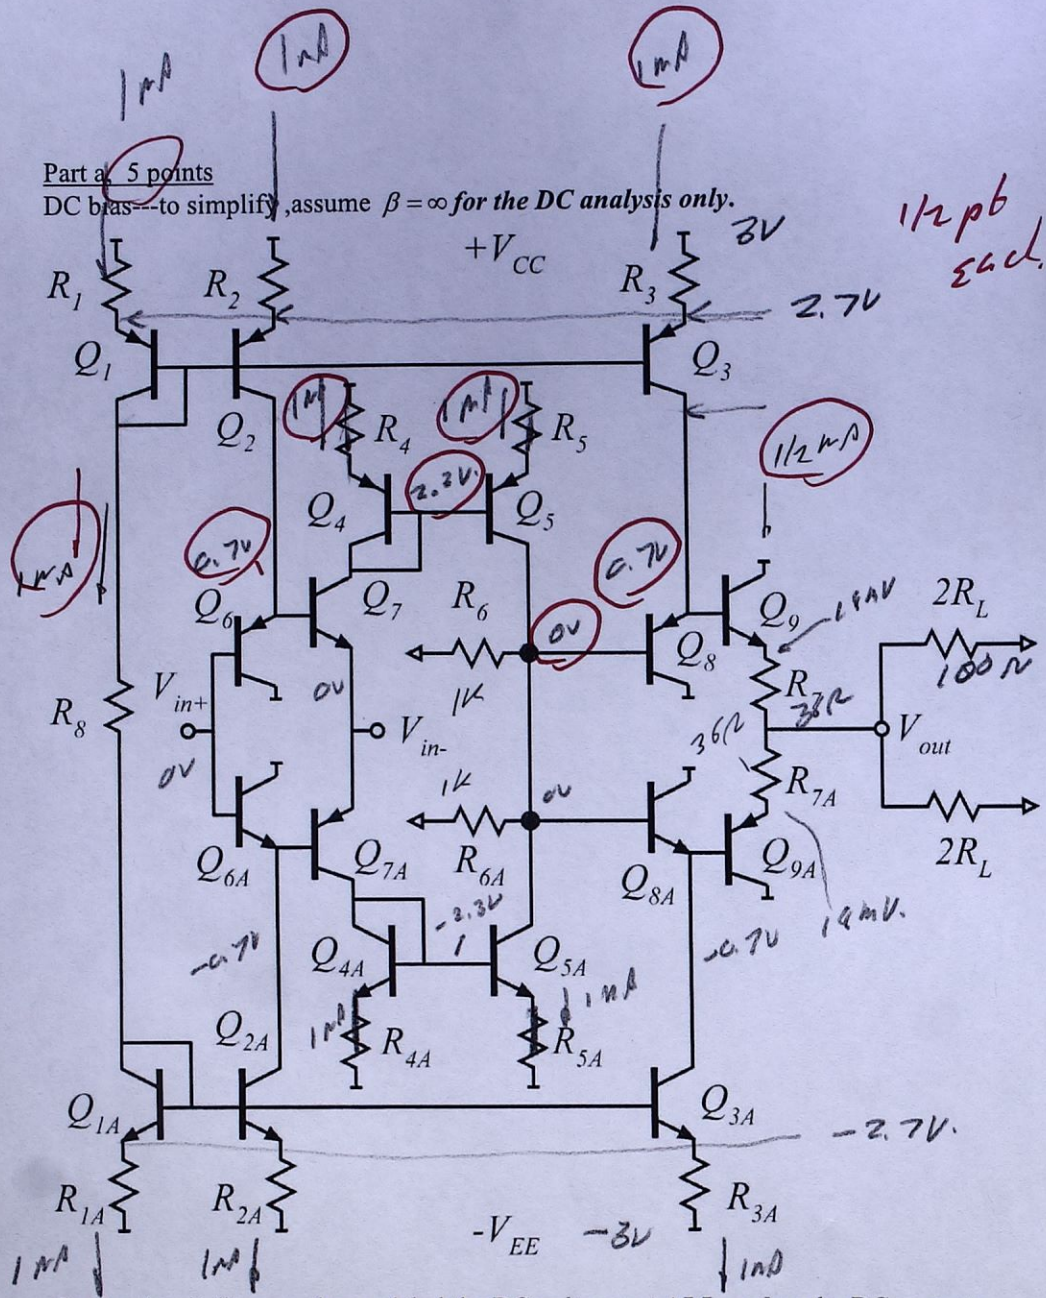 1mA
1mA
1mA
Part a, 5 points
DC bias---to simplify ,assume β = ∞ for the DC analysis only.
1/2 pt each.
+V_CC
3V
R_1
R_2
R_3
2.7V
Q_1
Q_2
Q_3
1mA
R_4
1mA
R_5
1/2 mA
Q_4
2.2V.
Q_5
1mA
0.7V
0.7V
Q_6
Q_7
R_6
0V
Q_8
Q_9
2R_L
100Ω
V_in+
0V
1K
R_7
36Ω
R_8
V_in-
36Ω
V_out
0V
1K
0V
R_7A
Q_6A
Q_7A
R_6A
Q_8A
Q_9A
2R_L
-2.3V
-0.7V
Q_4A
Q_5A
-0.7V
19mV.
1mA
1mA
Q_2A
R_4A
R_5A
Q_1A
Q_3A
-2.7V.
R_1A
R_2A
R_3A
-V_EE
-3V
1mA
1mA
1mA